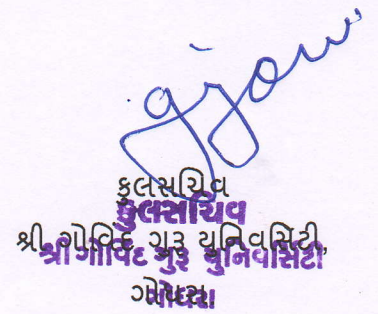 કુલસચિવ
કુલસચિવ
શ્રી ગોવિંદ ગુરૂ યુનિવર્સિટી,
શ્રી ગોવિંદ ગુરૂ યુનિવર્સિટી
ગોધરા.
ગોધરા